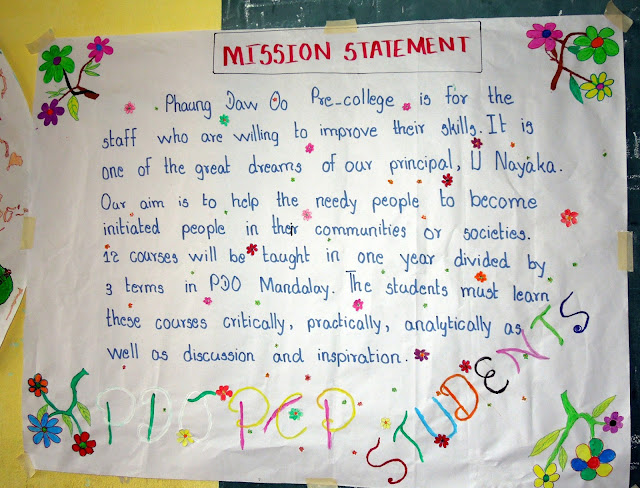 MISSION STATEMENT
Phaung Daw Oo Pre-college is for the
staff who are willing to improve their skills. It is
one of the great dreams of our principal, U Nayaka.
Our aim is to help the needy people to become
initiated people in their communities or societies.
12 courses will be taught in one year divided by
3 terms in PDO Mandalay. The students must learn
these courses critically, practically, analytically as
well as discussion and inspiration.
PDO PCP STUDENTS